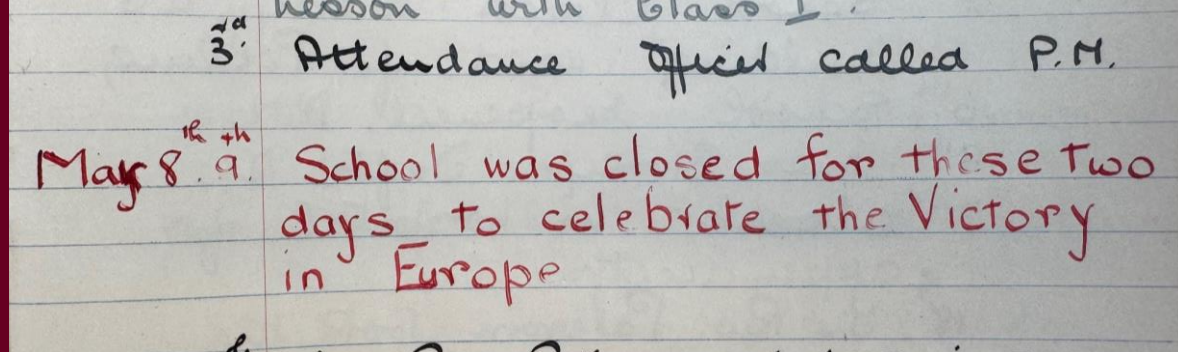 with Class I.
3rd. Attendance Officer called P.M.
May 8th. 9th. School was closed for these two
days to celebrate the Victory
in Europe